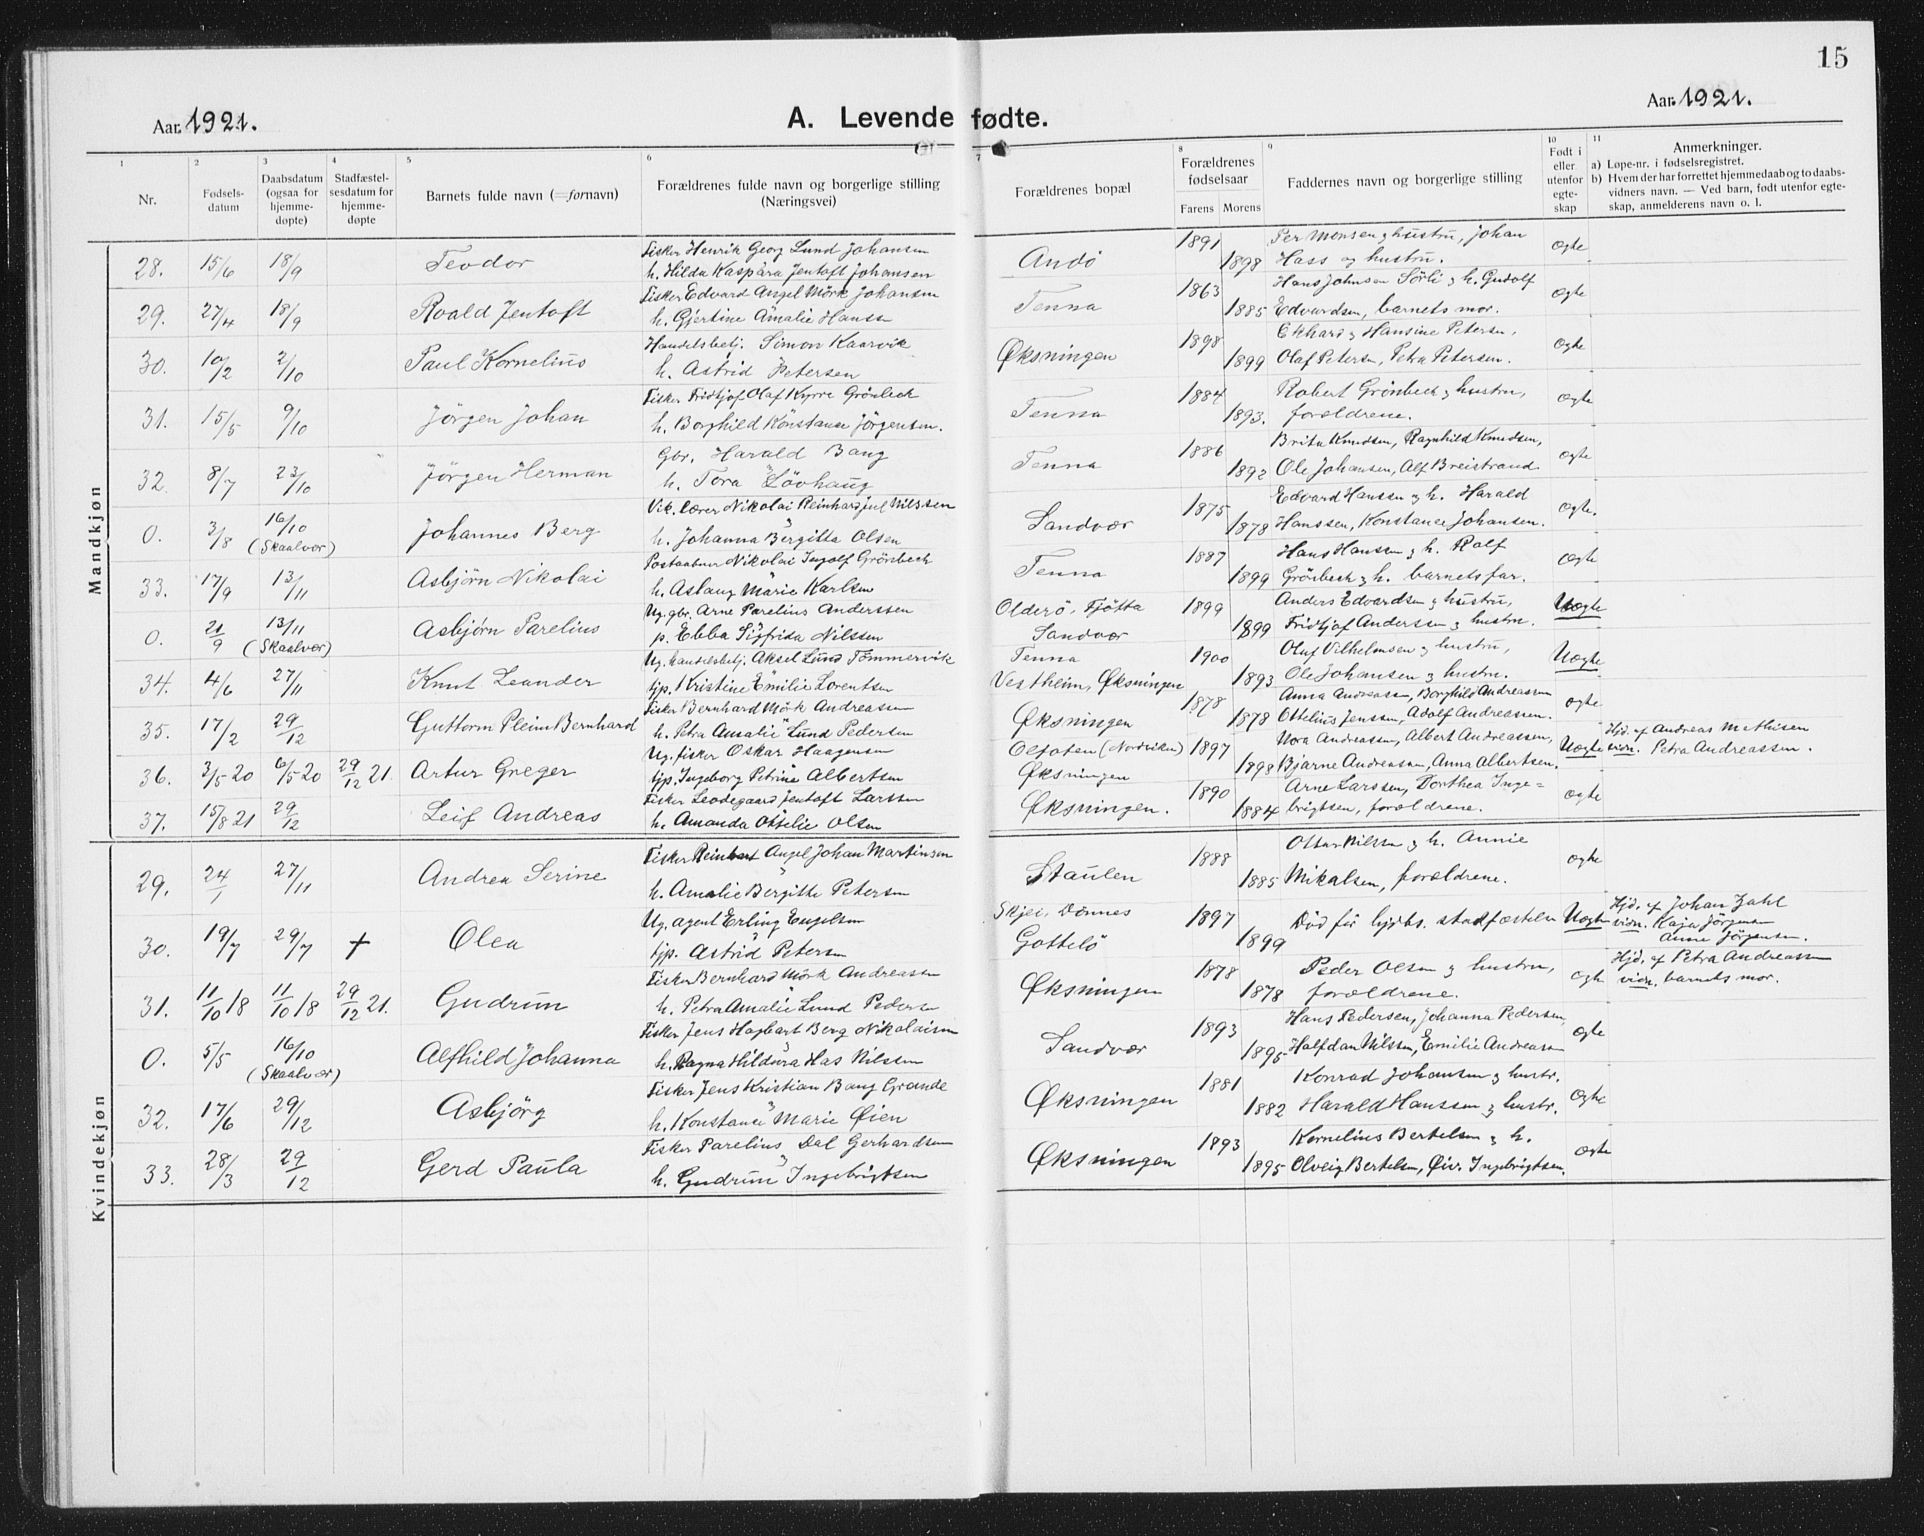 15
Aar 1921.
A. Levende fødte.
Aar 1921.
1 2 3 4 5 6 7 8 9 10 11
Nr.
Fødsels-
datum
Daabsdatum
(ogsaa for
hjemme-
døpte)
Stadfæstel-
sesdatum for
hjemme-
døpte
Barnets fulde navn (=fornavn)
Forældrenes fulde navn og borgerlige stilling
(Næringsvei)
Forældrenes bopæl
Forældrenes
fødselsaar
Farens Morens
Faddernes navn og borgerlige stilling
Født i
eller
utenfor
egte-
skap
Anmerkninger.
a) Løpe-nr. i fødselsregistret.
b) Hvem der har forrettet hjemmedaab og to daabs-
vidners navn. — Ved barn, født utenfor egte-
skap, anmelderens navn o. l.
Mandkjøn
28. 15/6 18/9 Teodor
Fisker Henrik Georg Lund Johansen
h. Hilda Kaspara Jentoft Johansen
Andö 1891 1898
Per Monsen og hustru, Johan
Hass og hustru.
egte
29. 27/4 18/9 Roald Jentoft
Fisker Edvard Angel Mörk Johansen
h. Gjertine Amalie Hansen
Tenna 1863 1885
Hans Johnsen Sörli og h. Gudolf
Edvardsen, barnets mor.
egte
30. 10/2 2/10 Paul Kornelius
Handelsbetj. Simon Kaarvik
h. Astrid Petersen
Øksningen 1898 1899
Ekhard og Hansine Petersen,
Olaf Petersen, Petra Petersen.
egte
31. 15/5 9/10 Jörgen Johan
Fisker Fridtjof Olaf Kyrre Grönbeck
h. Borghild Konstanse Jörgensen.
Tenna 1884 1893.
Robert Grönbeck og hustru,
forældrene.
egte
32. 8/7 23/10 Jörgen Herman
Gbr. Harald Bang
h. Tora Lövhaug
Tenna 1886 1892
Brita Knudsen, Ragnhild Knudsen,
Ole Johansen, Alf Breistrand
egte
0. 3/8 16/10 (Skaalvær) Johannes Berg
Vik. lærer Nikolai Reinhard Juul Nilssen
h. Johanna Bergitta Olsen
Sandvær 1875 1878
Edvard Hansen og h. Harald
Hanssen, Konstance Johansen.
egte.
33. 17/9 13/11 Asbjörn Nikolai
Postaabner Nikolai Ingolf Grönbeck
h. Aslaug Marie Karlsen
Tenna 1887 1899
Hans Hansen og h. Rolf
Grönbeck og h. barnets far.
egte
0. 21/9 13/11 (Skaalvær) Asbjørn Parelius
Ug. gbr. Arne Parelius Anderssen
p. Ebba Sigfrida Nilssen
Olderö, Tjötta
Sandvær
1899 1899
Anders Edvardsen og hustru,
Fridtjof Andersen og hustru.
Uegte
34. 4/6 27/11 Knut Leander
Ug. handelsbetj. Aksel Lund Tömmervik
tjp. Kristine Emilie Lorentsen
Tenna
Vestheim, Øksningen
1900 1893
Oluf Vilhelmsen og hustru,
Ole Johansen og hustru.
Uegte
35. 17/2 29/12 Guttorm Pleim Bernhard
Fisker Bernhard Mörk Andreassen
h. Petra Amalie Lund Pedersen
Øksningen 1878 1878
Anna Andreassen, Borghild Andreassen
Ottelius Jenssen, Adolf Andreassen.
egte
36. 3/5 20 6/5 20 29/12 21 Artur Greger
Ug. fisker Oskar Haagensen
tjp. Ingeborg Petrine Albertsen
Ofoten (Nordviken)
Øksningen
1897 1898
Nora Andreassen, Albert Andreassen,
Bjarne Andreassen, Anna Albertsen.
Uegte
Hjd. af Andreas Mathisen
vidn. Petra Andreassen.
37. 15/8 21 29/12 Leif Andreas
Fisker Leodegaard Jentoft Larssen
h. Amanda Ottelie Olsen
Øksningen. 1890 1884
Arne Larssen, Dorthea Inge=
brigtsen, forældrene.
egte
Kvindekjøn
29. 24/1 27/11 Andrea Serine
Fisker Reinhart Angel Johan Martinsen
h. Amalie Bergitte Petersen
Staulen 1888 1885
Ottar Nilsen og h. Annie
Mikalsen, forældrene.
egte
30. 19/7 29/7 + Olea
Ug. agent Erling Engelsen
tjp. Astrid Petersen
Skjei, Dönnes
Gottelö
1897 1899
Död för hjdbs. stadfæstelse
Uegte
Hjd. af Johan Zahl
vidn. Kaja Jörgensen
Anne Jörgensen.
31. 11/10 18 11/10 18 29/12 21. Gudrun
Fisker Bernhard Mörk Andreassen
h. Petra Amalie Lund Pedersen
Øksningen 1878 1878
Peder Olsen og hustru,
forældrene.
egte
Hjd. af Petra Andreassen
vidn. barnets mor.
0. 5/5 16/10 (Skaalvær) Alfhild Johanna
Fisker Jens Hagbart Berg Nikolaisen
h. Ragna Hildura Has Nilssen
Sandvær 1893 1895
Hans Pedersen, Johanna Pedersen,
Halfdan Nilssen, Emilie Andreassen
egte
32. 17/6 29/12 Asbjörg
Fisker Jens Kristian Bang Grande
h. Konstance Marie Øien
Øksningen 1881 1882
Konrad Johansen og hustr.
Harald Hanssen og hustr.
egte
33. 28/3 29/12 Gerd Paula
Fisker Parelius Dal Gerhardsen
h. Gudrun Ingebrigtsen
Øksningen 1893 1895
Kornelius Bertelsen og h.
Olveig Bertelsen, Öiv. Ingebrigtsen.
egte